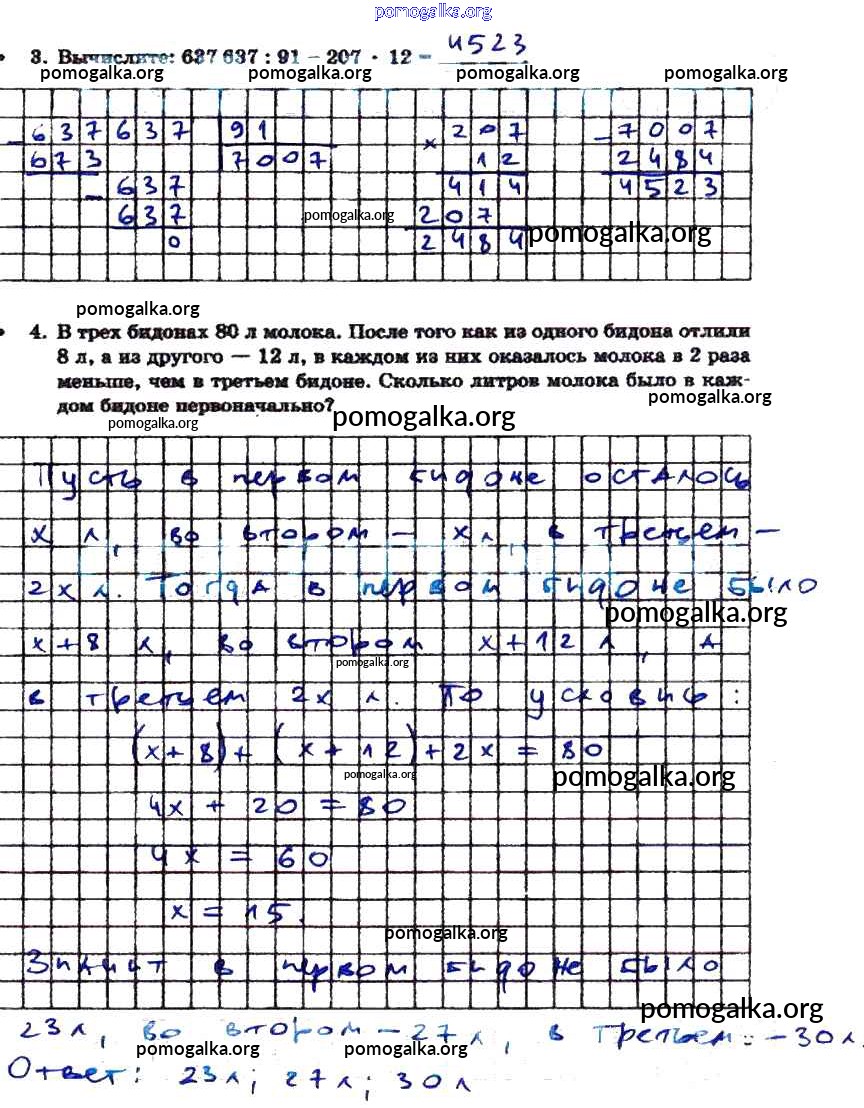 pomogalka.org
3. Вычислите: 637 637 : 91 – 207 · 12 = 4523
pomogalka.org pomogalka.org pomogalka.org pomogalka.org
– 637637 91 × 207 – 7007
673 7007 12 2484
– 637 414 4523
637 pomogalka.org 207
0 2484 pomogalka.org
pomogalka.org
4. В трех бидонах 80 л молока. После того как из одного бидона отлили
8 л, а из другого — 12 л, в каждом из них оказалось молока в 2 раза
меньше, чем в третьем бидоне. Сколько литров молока было в каж-
pomogalka.org
дом бидоне первоначально?
pomogalka.org
pomogalka.org
Пусть в первом бидоне осталось
x л, во втором – x л, в третьем –
2x л. Тогда в первом бидоне было
pomogalka.org
x + 8 л, во втором x + 12 л, а
pomogalka.org
в третьем 2x л. По условию:
(x + 8) + (x + 12) + 2x = 80
pomogalka.org pomogalka.org
4x + 20 = 80
4x = 60
x = 15.
pomogalka.org
Значит в первом бидоне было
pomogalka.org
23 л, во втором – 27 л, в третьем – 30 л.
pomogalka.org pomogalka.org
Ответ: 23 л; 27 л; 30 л